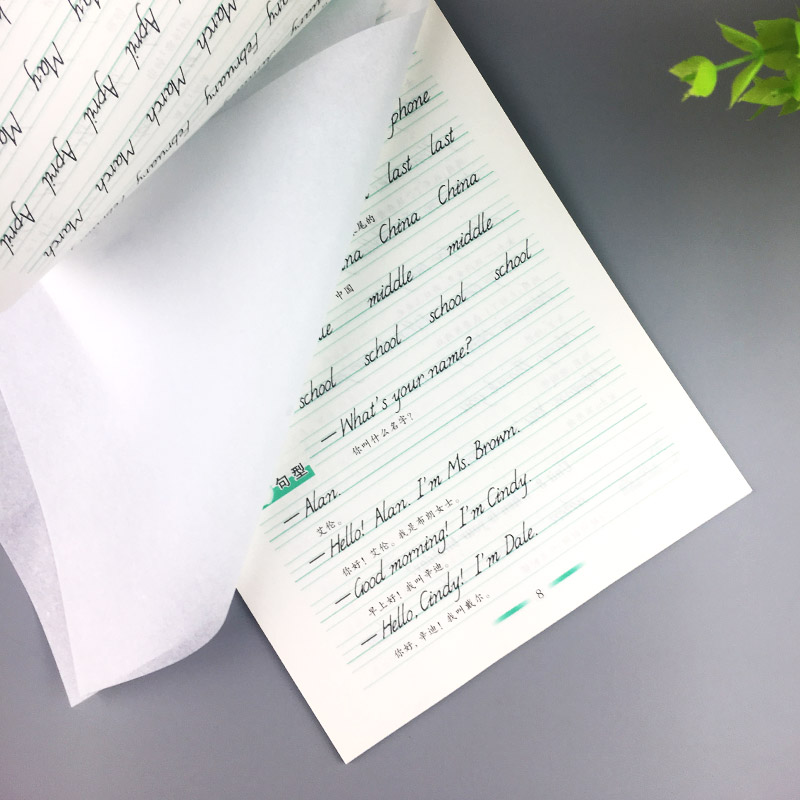 May May
April April April April
March March March March
February February
phone
last last
尾的
China China
中国
middle middle
school school school school
— What's your name?
你叫什么名字?
句型
— Alan.
艾伦。
— Hello! Alan. I'm Ms. Brown.
你好!艾伦。我是布朗女士。
— Good morning! I'm Cindy.
早上好!我叫辛迪。
— Hello, Cindy! I'm Dale.
你好,辛迪!我叫戴尔。
8